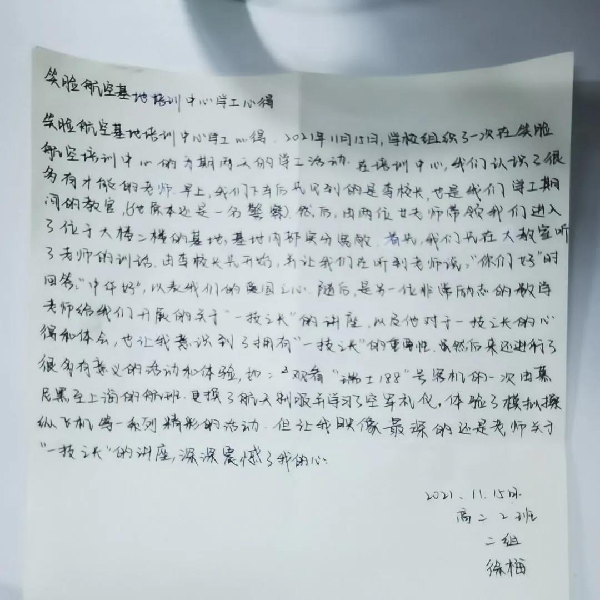 笑脸航空基地培训中心学工心得
笑脸航空基地培训中心学工心得，2021年11月15日，学校组织了一次在笑脸
航空培训中心的为期两天的学工活动。在培训中心，我们认识了很
多有才能的老师。早上，我们下车后先见到的是李校长，也是我们学工期
间的教官，（他原本还是一名警察）。然后，由两位女老师带领我们进入
了位于大楼二楼的基地，基地内部十分宽敞。首先，我们先在大教室听
了老师的训话。由李校长先开始，并让我们在听到老师说，“你们好”时
回答，“中华好”，以表我们的爱国之心。随后，是另一位非常励志的教学
老师给我们开展的关于“一技之长”的讲座，以及他对于一技之长的心
得和体会，也让我意识到了拥有“一技之长”的重要性。虽然后来还进行了
很多有意义的活动和体验，如：观看“瑞士188”号客机的一次由慕
尼黑至上海的航班。更换了航天制服并学习了空军礼仪，体验了模拟操
纵飞机等一系列精彩的活动。但让我映像最深的还是老师关于
“一技之长”的讲座，深深震憾了我的心。
2021.11.15日
高二2班
二组
徐梅